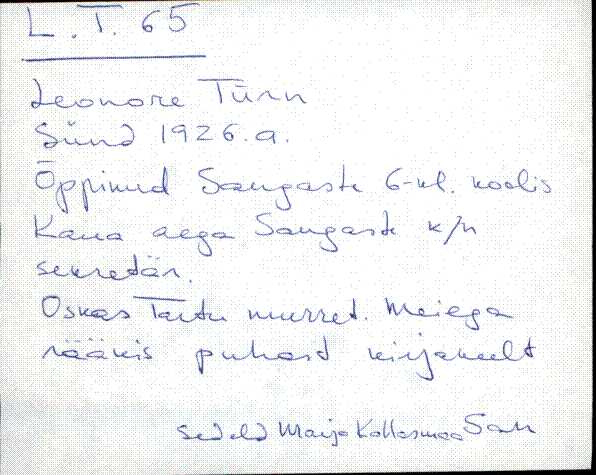 L.T. 65
Leonore Türn
Sünd 1926.a.
Õppinud Sangaste 6-kl. koolis
Kaua aega Sangaste k/n
sekretär.
Oskas Tartu murret. Meiega
rääkis puhast kirjakeelt
sedeld Maija Kallasmaa San